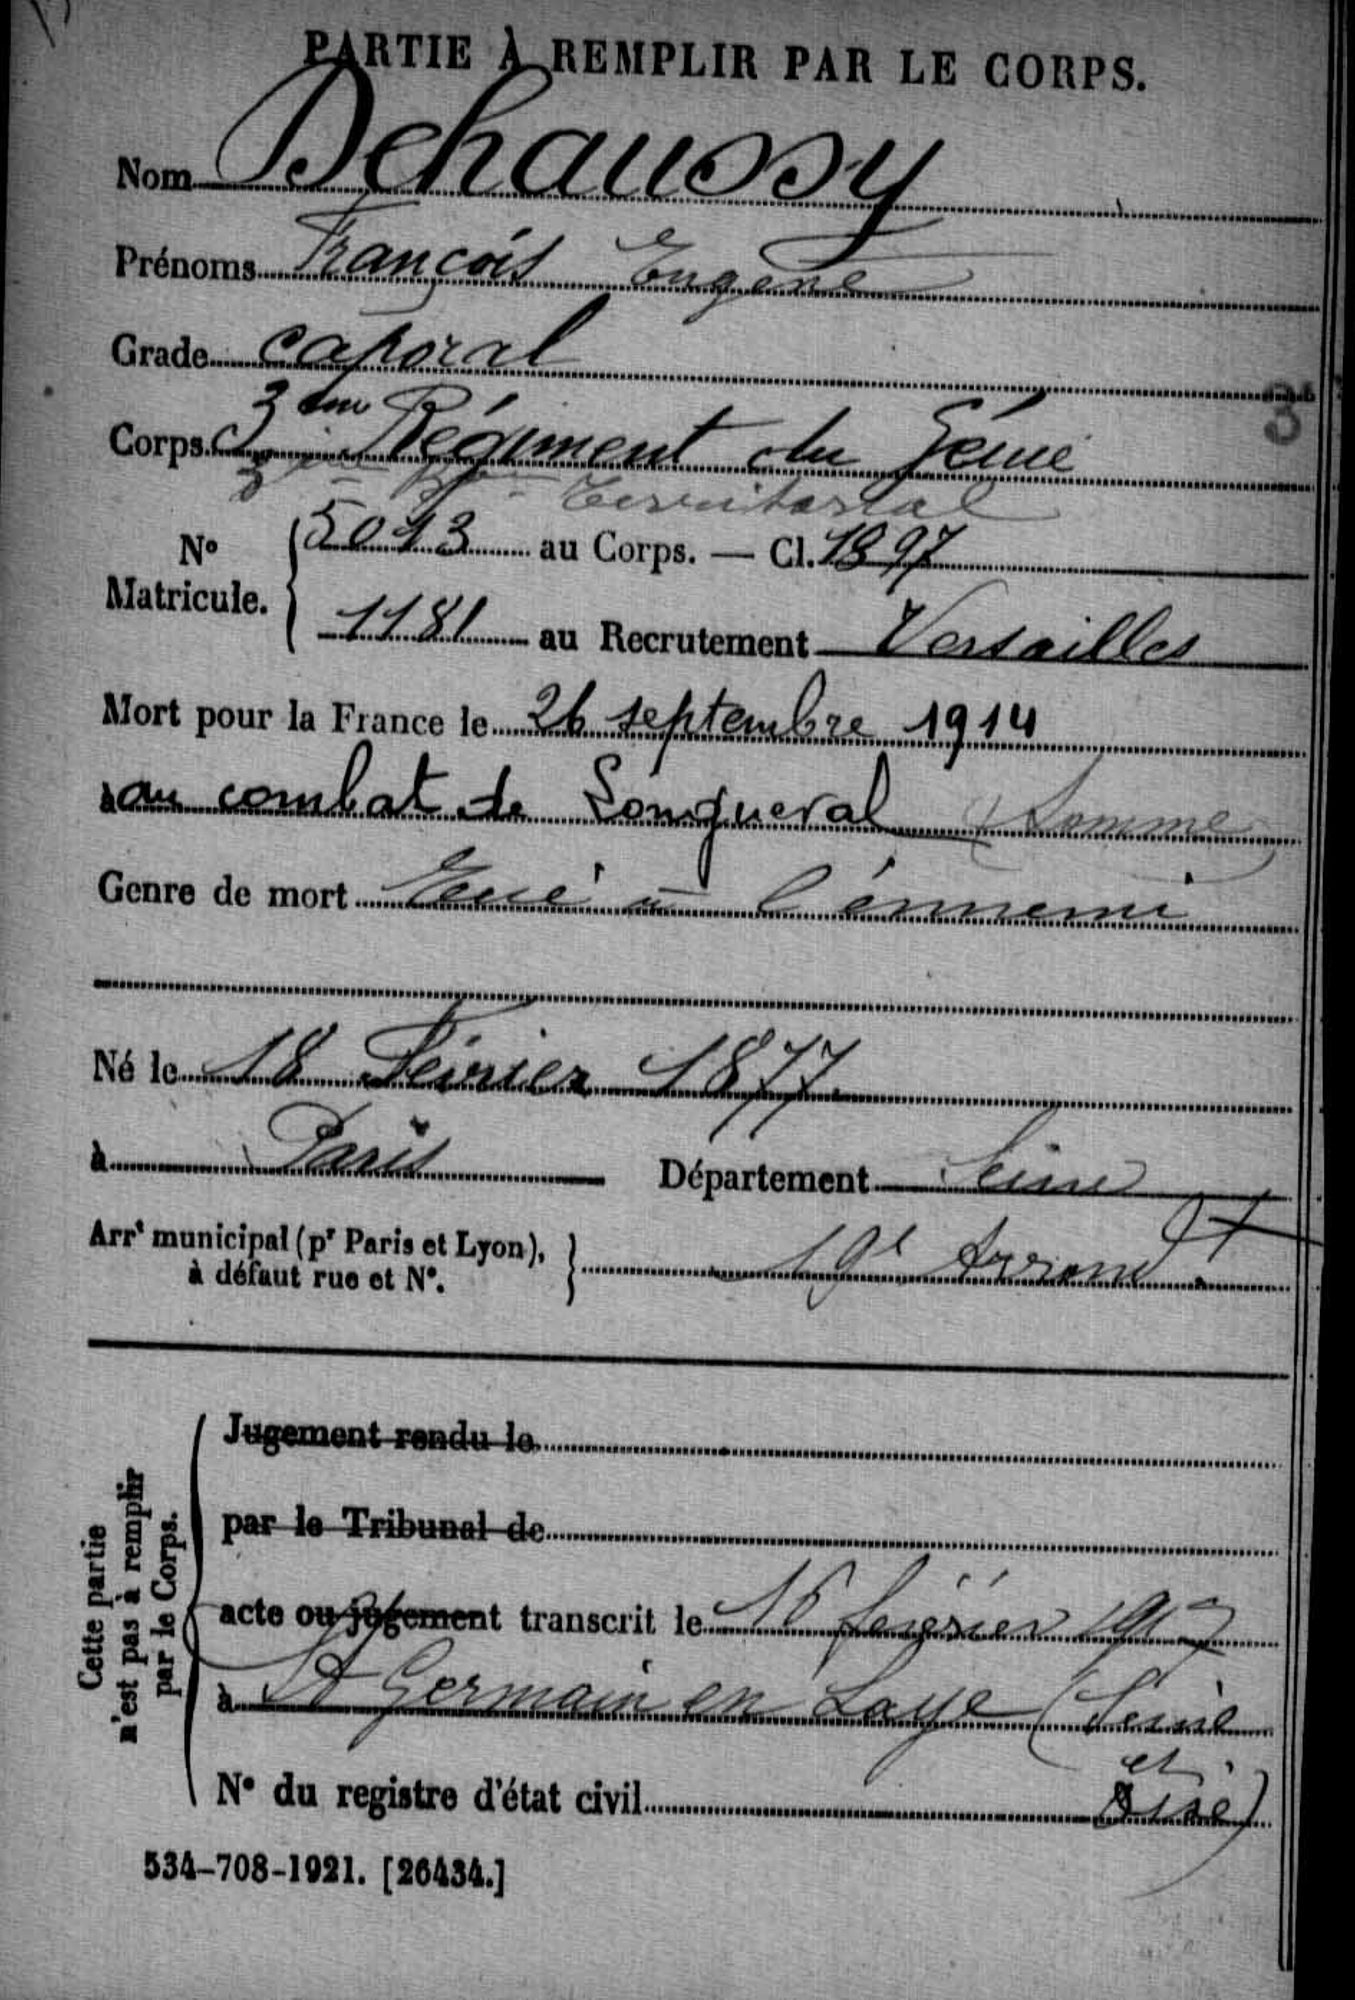 PARTIE À REMPLIR PAR LE CORPS.
Nom Dehaussy
Prénoms François Eugène
Grade caporal
3
3ème
Corps Régiment du Génie
Territorial
No Matricule. 5013 au Corps. — Cl. 1897
1181 au Recrutement Versailles
Mort pour la France le 26 septembre 1914
à au combat de Longueval (Somme)
Genre de mort Tué à l'énnemi
Né le 18 Février 1877
à Paris Département Seine
Arrt municipal (pr Paris et Lyon), à défaut rue et N°. 19e Arrond.t
Cette partie n'est pas à remplir par le Corps.
Jugement rendu le
par le Tribunal de
acte ou jugement transcrit le 16 février 1917
à St Germain en Laye (Seine
et
N° du registre d'état civil Oise)
534-708-1921. [26434.]